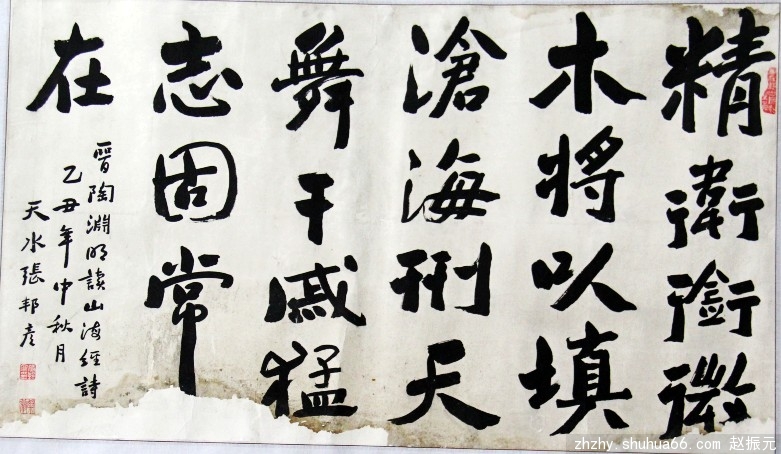 精衛銜微
木將以填
滄海刑天
舞干戚猛
志固常
在
晉陶淵明讀山海經詩
乙丑年中秋月
天水張邦彥
zhzhy.shuhua66.com 赵振元